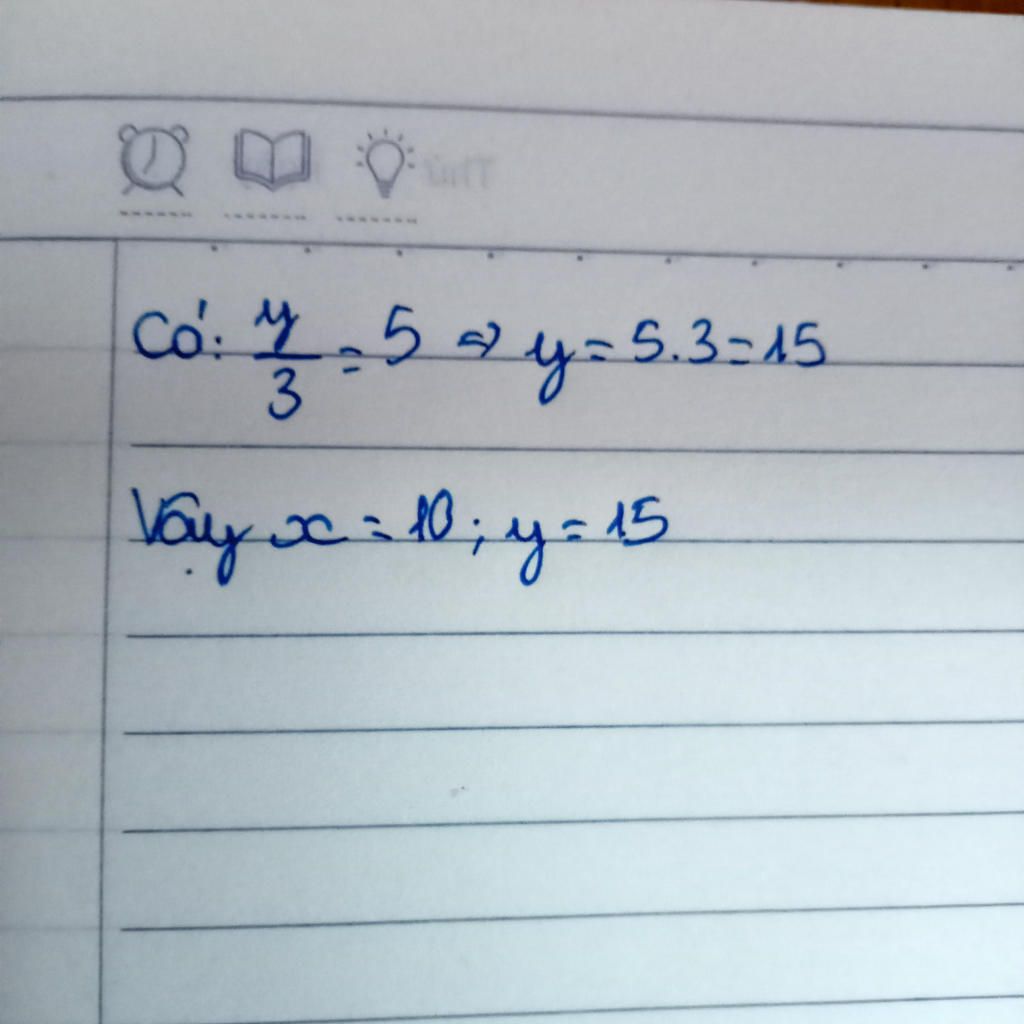 Có: y/3 = 5 => y = 5.3 = 15
Vậy x = 10; y = 15